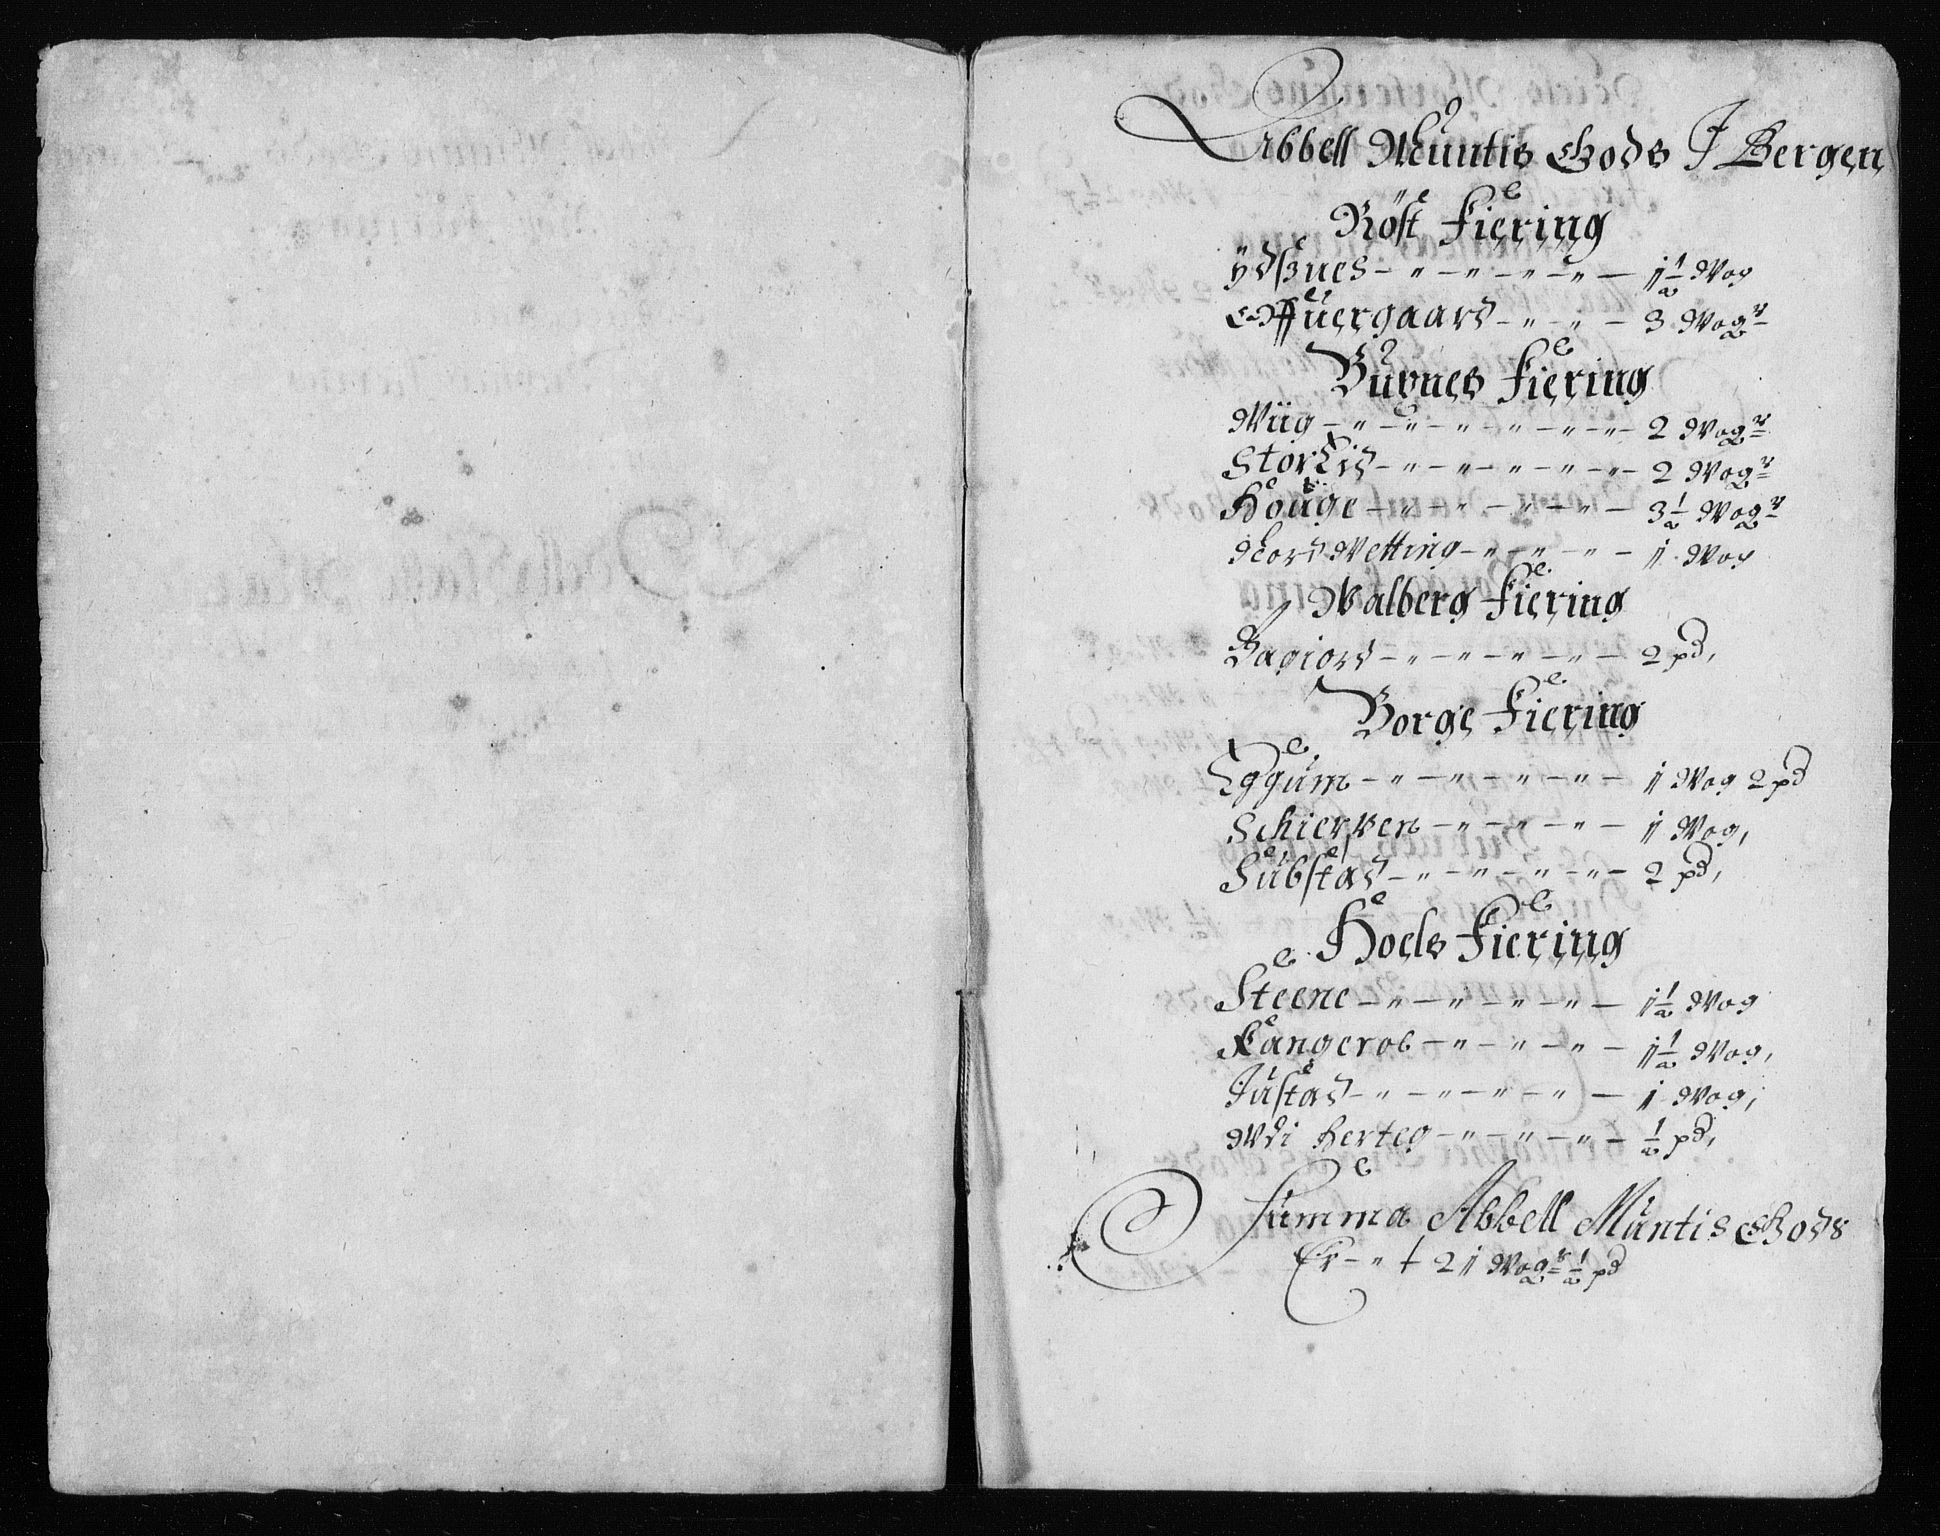 Abbell Muntis Gods J Bergen
Röst Fiering
ÿdßnes - " - " - " - " - 1 1/2 Wog
Offuergaard - " - " - 3 Wogr
Bursnes Fiering
Wiig - " - " - " - " - " - " - 2 Wogr
Storlid - " - " - " - " - " - 2 Wogr
Houge - " - " - " - " - 3 1/2 Wogr
Wetting - " - " - " - 1 Wog
Walberg Fiering
Bagiord - " - " - " - " - 2 pd,
Borge Fiering
Eggum - " - " - " - " - 1 Wog 2 pd
Schierpen - " - " - " - 1 Wog,
Substad - " - " - " - " - 2 pd,
Hoels Fiering
Steene - " - " - " - " - 1 1/2 Wog
Fangerob - " - " - " - 1 1/2 Wog,
Justad - " - " - " - " - 1 Wog,
Wdi herteg - " - " - " - 1/2 pd,
Summa Abbell Muntis Gods
Er - " - 21 Wogr 1/2 pd